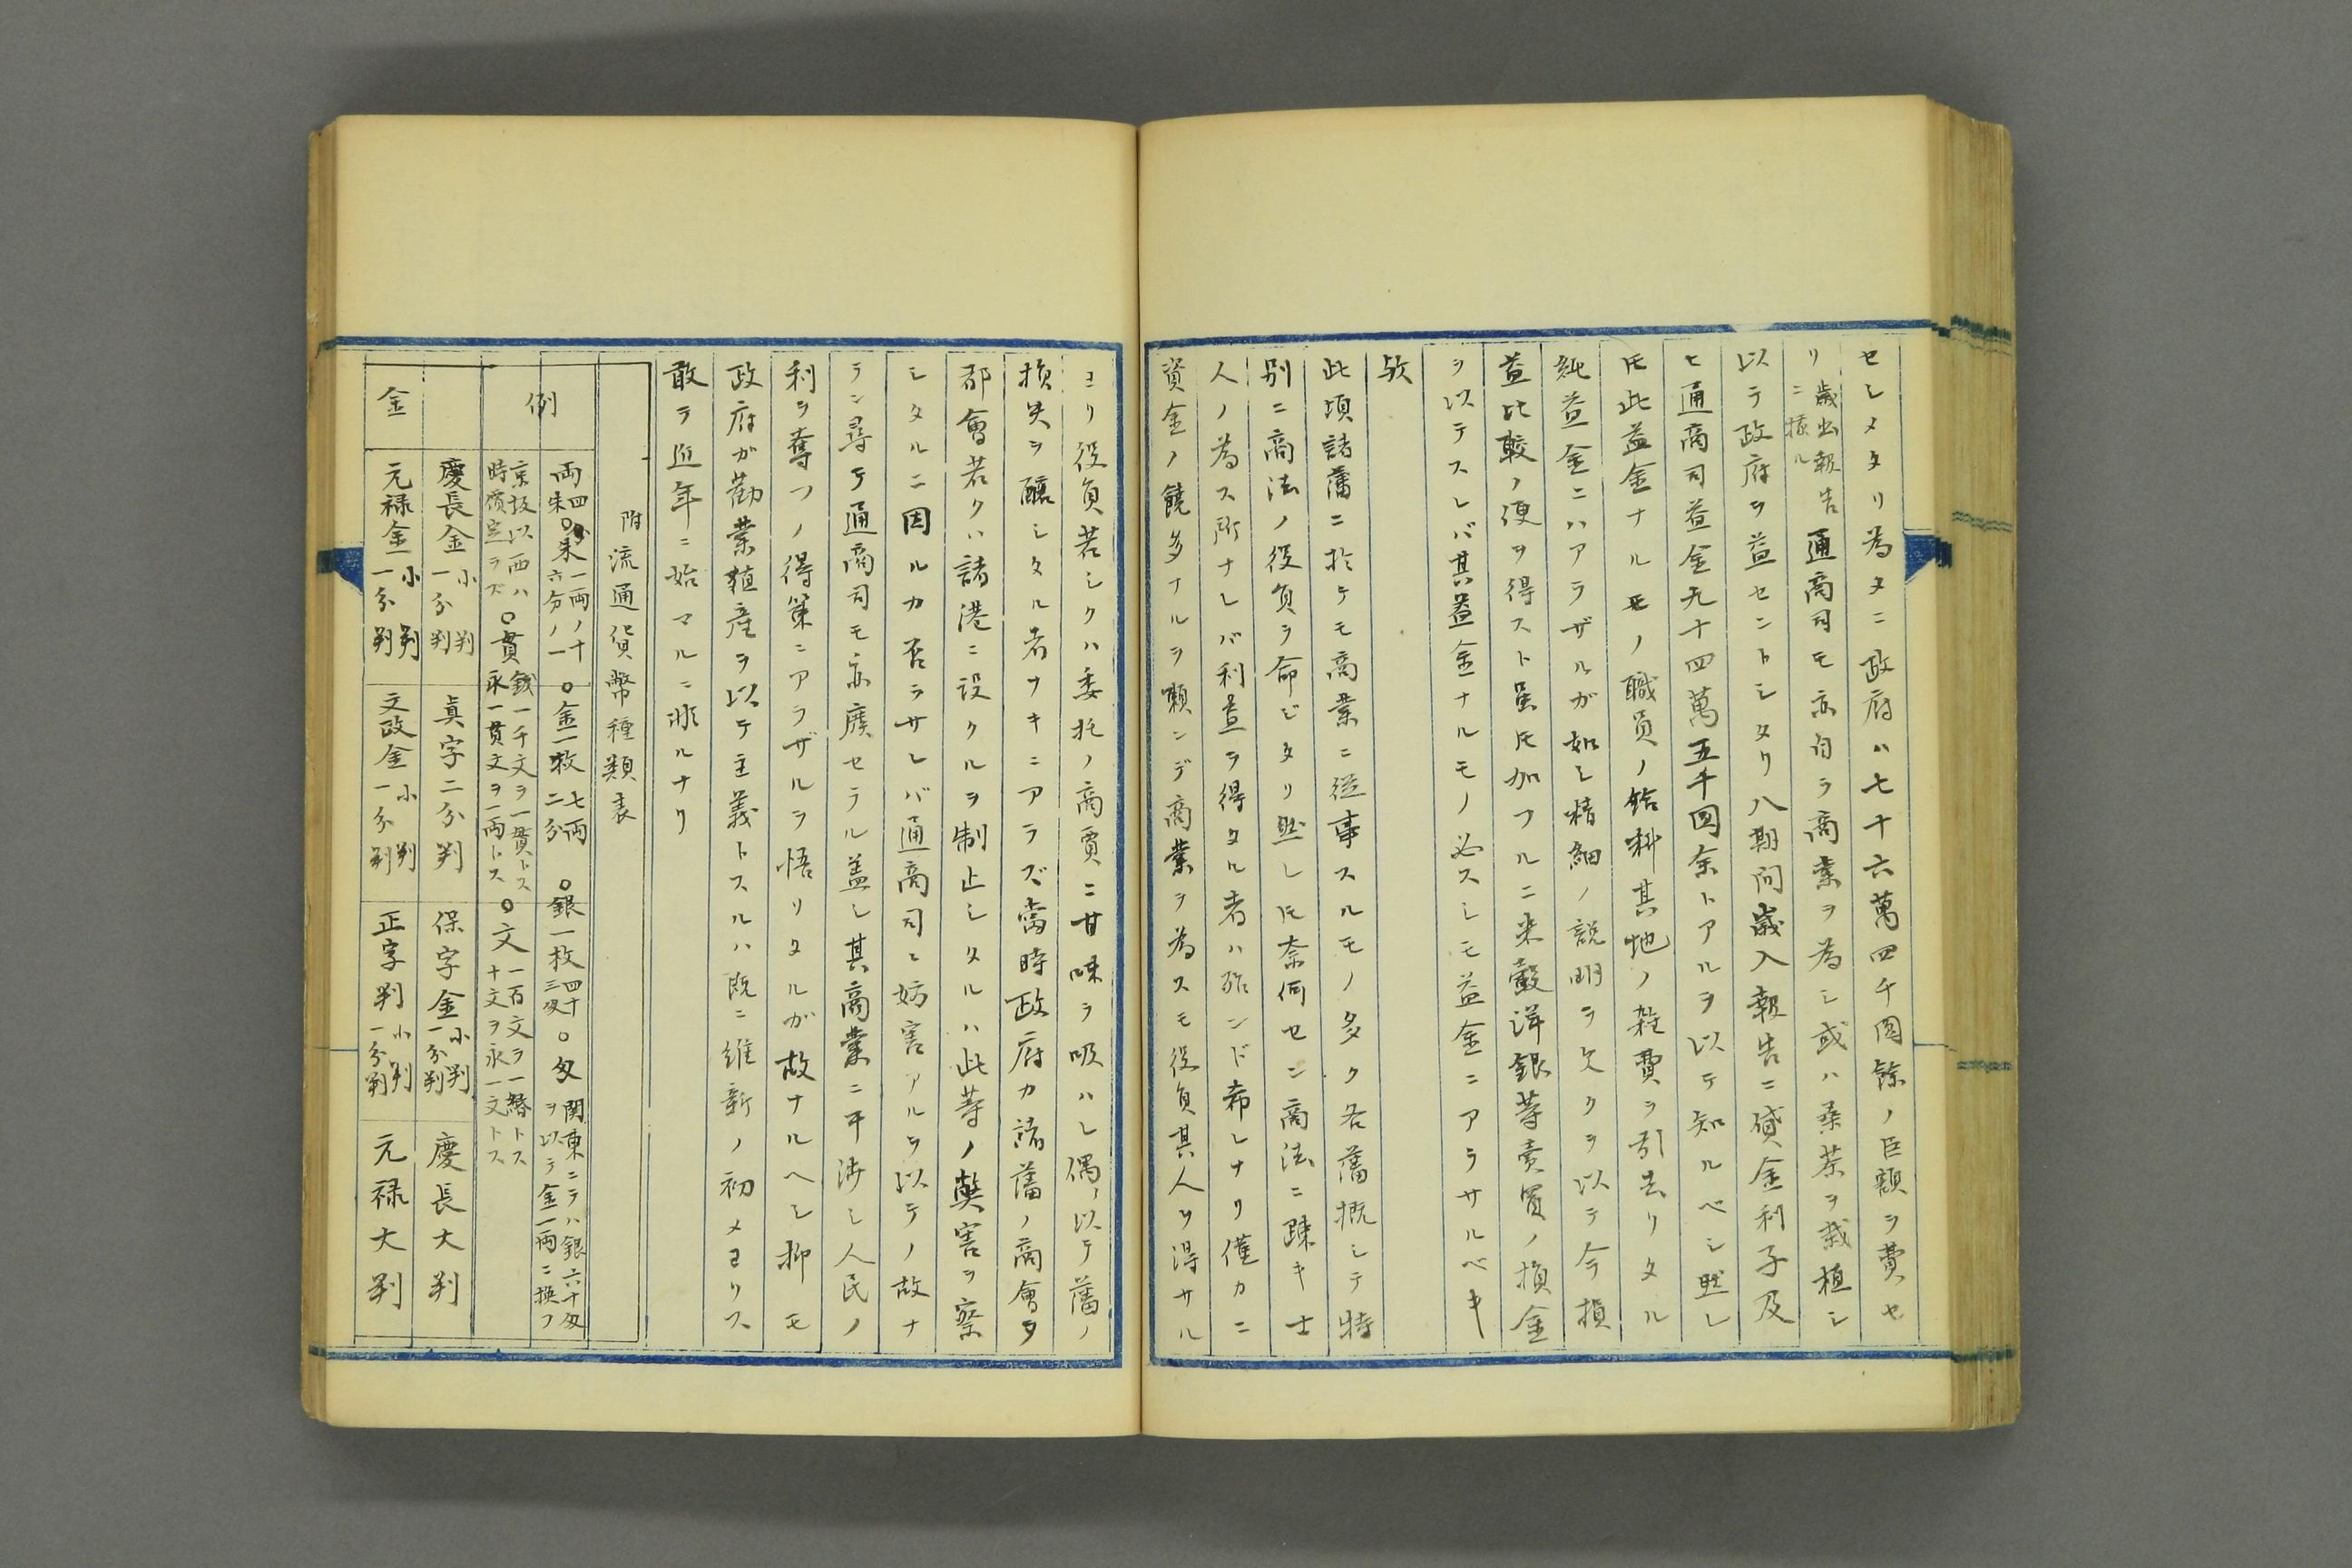 セシメタリ為タニ政府ハ七十六萬四千圓餘ノ巨額ヲ費セ
リ歳出報告ニ據ル通商司モ亦自ラ商業ヲ為シ或ハ桑茶ヲ栽植シ
以テ政府ヲ益セントシタリ八期間歳入報告ニ貸金利子及
ヒ通商司益金九十四萬五千圓余トアルヲ以テ知ルベシ然レ
𪜈此益金ナルモノ職員ノ給料其他ノ雑費ヲ引去リタル
純益金ニハアラザルガ如シ精細ノ説明ヲ欠クヲ以テ今損
益比較ノ便ヲ得スト虽𪜈加フルニ米穀洋銀等賣買ノ損金
ヲ以テスレバ其益金ナルモノ必スシモ益金ニアラサルベキ
欤
此頃諸藩ニ於テモ商業ニ從事スルモノ多ク各藩概シテ特
別ニ商法ノ役負ヲ命ジタリ然レ𪜈奈何セン商法ニ疎キ士
人ノ為ス所ナレバ利益ヲ得タル者ハ殆ンド希レナリ僅カニ
資金ノ饒多ナルヲ頼ンデ商業ヲ為スモ役負其人ヲ得サル
ヨリ役負若シクハ委托ノ商賈ニ甘味ヲ吸ハレ偶〻以テ藩ノ
損失ヲ醸シタル者ナキニアラズ當時政府カ諸藩ノ商會ヲ
都會若クハ諸港ニ設クルヲ制止シタルハ此等ノ獘害ヲ察
シタルニ因ルカ否ラサレバ通商司ニ妨害アルヲ以テノ故ナ
ラン尋テ通商司モ亦廃セラル盖シ其商業ニ干渉シ人民ノ
利ヲ奪フノ得策ニアラザルヲ悟リタルガ故ナルヘシ抑モ
政府が勸業殖産ヲ以テ主義トスルハ既ニ維新ノ初メヨリス
敢テ近年ニ始マルニ非ルナリ
附流通貨幣種類表
例
両四分〇朱一両ノ十六分ノ一〇金一枚七両二分〇銀一枚四十三匁〇匁関東ニテハ銀六十匁ヲ以テ金一両ニ換フ
京坂以西ハ時價定ラズ〇貫錢一千文ヲ一貫トス永一貫文ヲ一両トス〇文一百文ヲ一緡トス十文ヲ永一文トス
金
慶長金小判一分判 真字二分判 保字金小判一分判 慶長大判
元禄金小判一分判 文政金小判一分判 正字判小判一分判 元禄大判